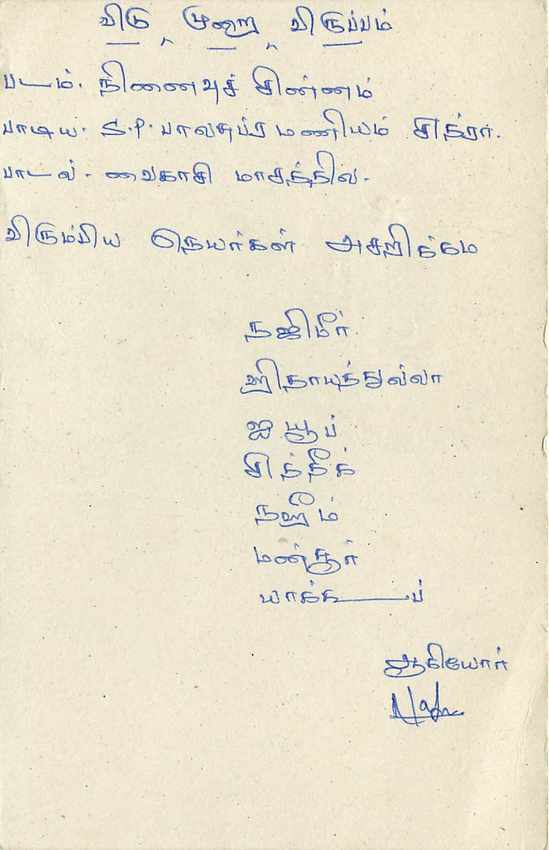 விடு முறை விருப்பம்
படம். நினைவுச் சின்னம்
பாடிய. S.P. பாலசுப்ரமணியம் சித்ரா.
பாடல் - வைகாசி மாசத்தில.
விரும்பிய நெயர்கள்
நஜிமீர்
ஹிதாயத்துல்லா
ஐயூப்
சித்தீக்
நஹீம்
மன்சூர்
யாக்கூப்
ஆகியோர்